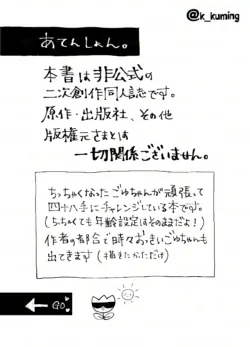 @k_kuming
あてんしょん。
本書は非公式の
二次創作同人誌です。
原作・出版社、その他
版権元さまとは
一切関係ございません。
ちっちゃくなったごゅちゃんが頑張って
四十八手にチャレンジしている本です。
(ちっちゃくても年齢設定はそのままだよ!)
作者の都合で時々おっきいごゅちゃんも
出てきます(描きたかっただけ)
GO